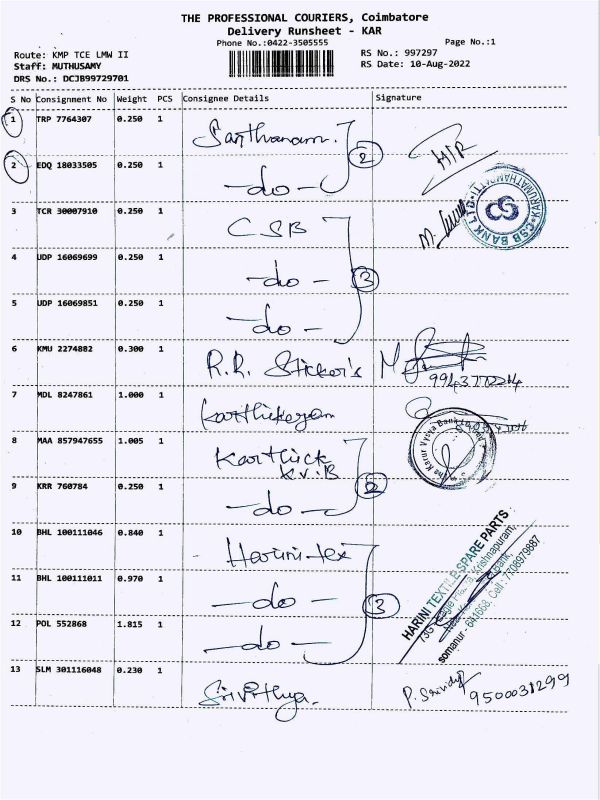 THE PROFESSIONAL COURIERS, Coimbatore
Delivery Runsheet - KAR
Phone No.:0422-3505555 Page No.:1
Route: KMP TCE LMW II RS No.: 997297
Staff: MUTHUSAMY RS Date: 10-Aug-2022
DRS No.: DCJB99729701
S No Consignment No Weight PCS Consignee Details Signature
1 TRP 7764307 0.250 1 Santhanam. 2
2 EDQ 18033505 0.250 1 -do-
3 TCR 30007910 0.250 1 CSB CSB BANK LTD
4 UDP 16069699 0.250 1 -do- 3
5 UDP 16069851 0.250 1 -do-
6 KMU 2274882 0.300 1 R.R. Sticker's
7 MDL 8247861 1.000 1 Karthikeyan
8 MAA 857947655 1.005 1 Karthick K.V.B The Karur Vysya Bank
9 KRR 760784 0.250 1 -do- 2
10 BHL 100111046 0.840 1 Harini tex
11 BHL 100111011 0.970 1 -do- 3
12 POL 552868 1.815 1 -do-
HARINI TEXTILE SPARE PARTS
Krishnapuram,
somanur - 641668. Cell : 7708979887
13 SLM 301116048 0.230 1 Srivithya. P. Srividya 9500031299